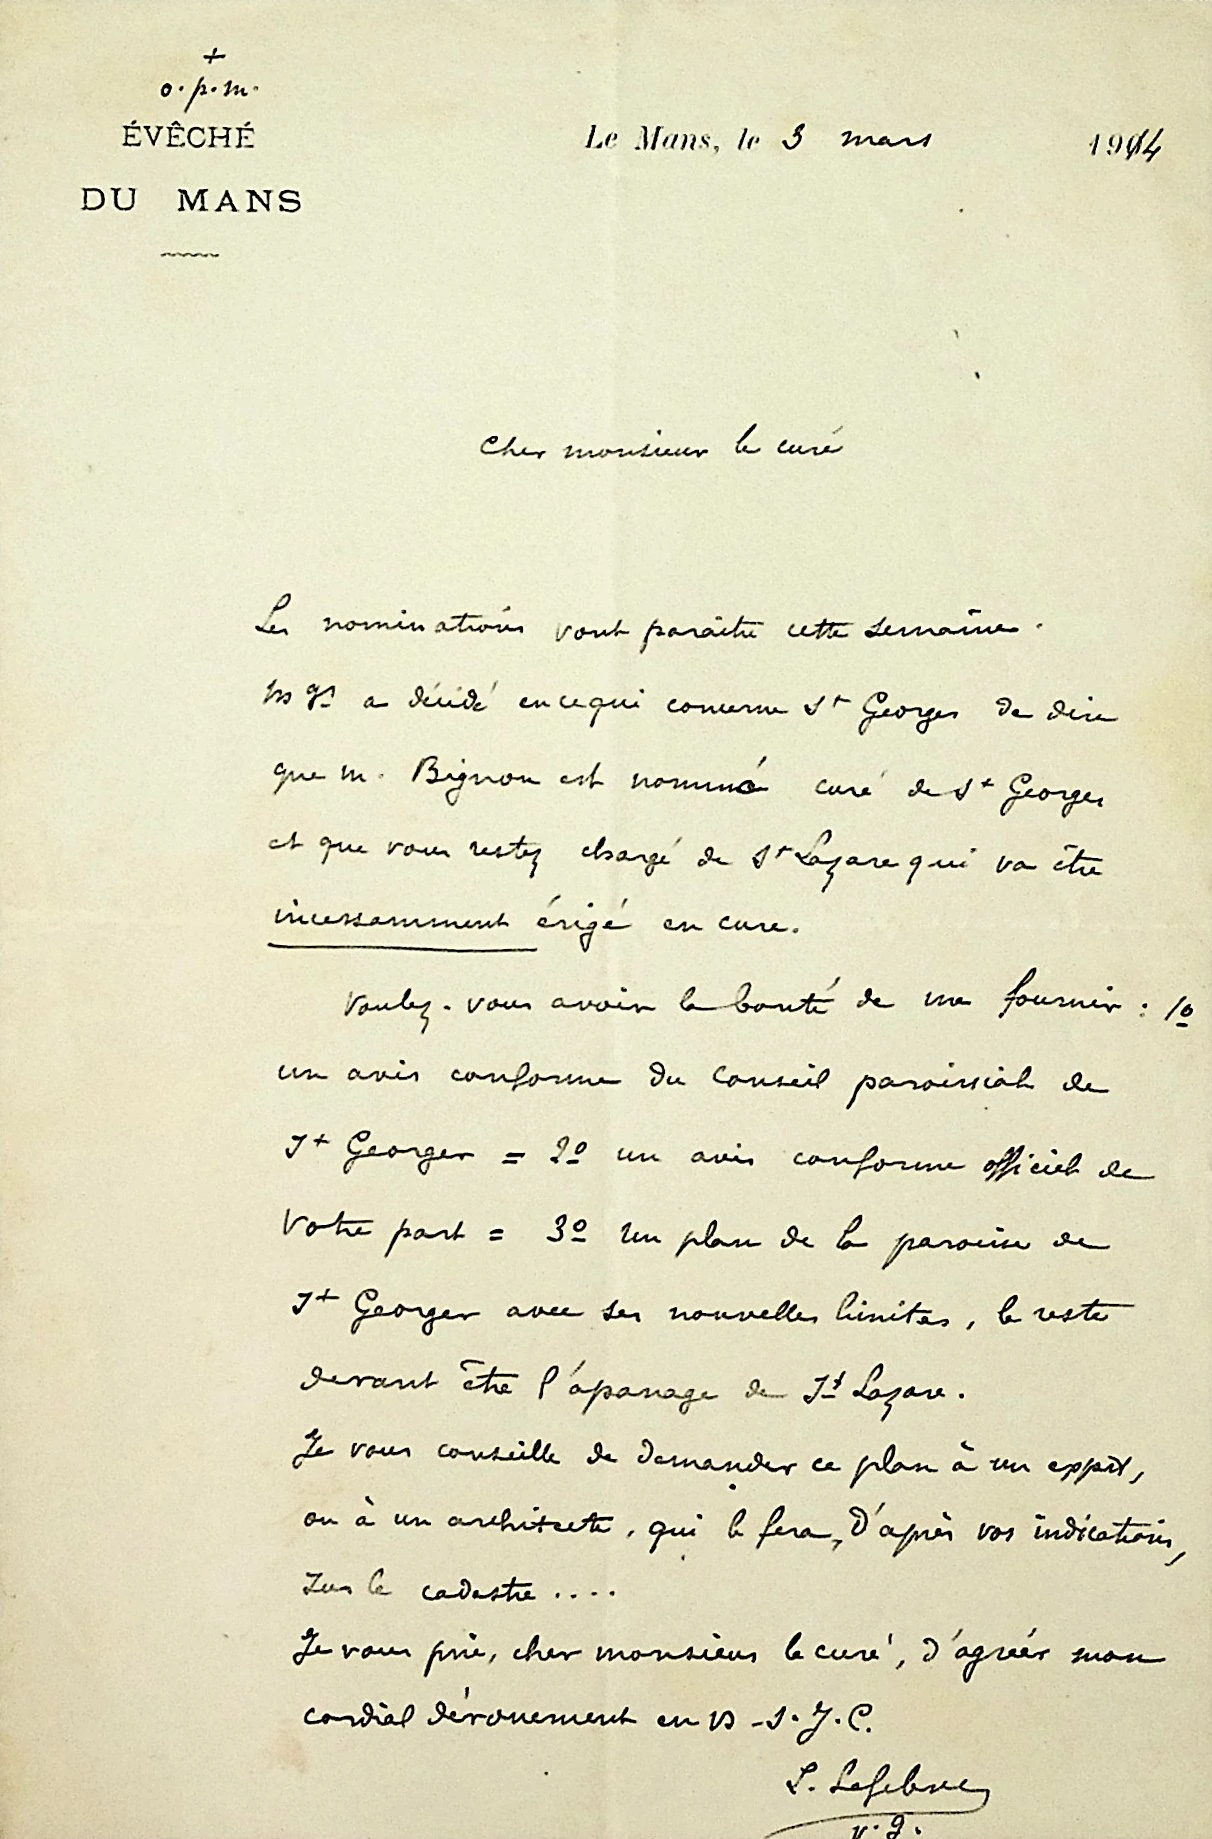 +
o. p. m.
ÉVÊCHÉ
DU MANS
Le Mans, le 3 mars 1914
Cher monsieur le curé
Les nominations vont paraître cette semaine.
Mgr a décidé en ce qui concerne St Georges de dire
que m. Bignon est nommé curé de St Georges
et que vous restez chargé de St Lazare qui va être
incessamment érigé en cure.
Voulez-vous avoir la bonté de me fournir : 1o
un avis conforme du Conseil paroissial de
St Georges = 2o un avis conforme officiel de
votre part = 3o un plan de la paroisse de
St Georges avec ses nouvelles limites, le reste
devant être l'apanage de St Lazare.
Je vous conseille de demander ce plan à un expert,
ou à un architecte, qui le fera, d'après vos indications,
sur le cadastre ....
Je vous prie, cher monsieur le curé, d'agréer mon
cordial dévouement en N-S. J. C.
L. Lefebvre
v. g.